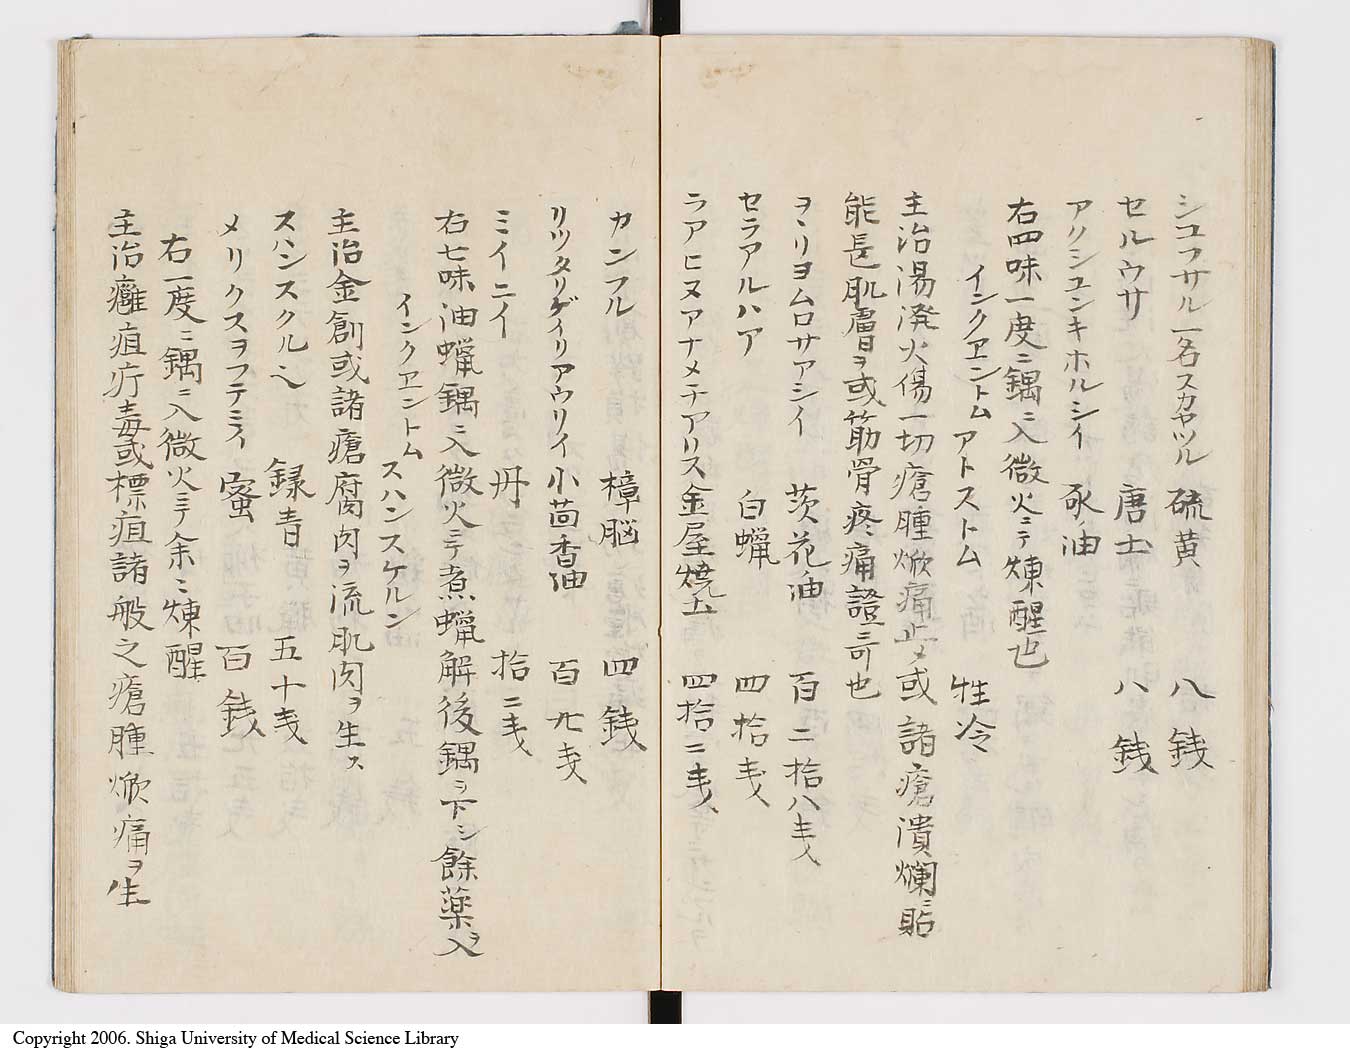 シユフサル一名スカヤツル 硫黄 八銭
セルウサ 唐土 八銭
アクシユンキホルシイ 豕ノ油
右四味一度ニ鍋ニ入微火ニテ煉醒也
インクヱントム アトストム 性冷
主治湯溌火傷一切瘡腫焮痛止メ或諸瘡潰爛ニ貼
能長肌膚ヲ或筋骨疼痛證ニ可也
ヲヽリヨムロサアシイ 茨花油 百二拾八戔
セラアルハア 白蠟 四拾戔
ラアヒヌアナメチアリス 金屋焼土 四拾二戔
カンフル 樟脳 四銭
リツタリゲイリアウリイ 小茴香油 百九戔
ミイニイ 丹 拾二戔
右七味油蠟鍋ニ入微火ニテ煮蠟解後鍋ヲ下シ餘薬入ラ
インクヱントム スハンスケルン
主治金創或諸瘡腐肉ヲ流肌肉ヲ生ス
スハンスクルヘ 録青 五十戔
メリクスヲフテミイ 蜜 百銭
右一度ニ鍋ニ入微火ニテ余ニ煉醒
主治癰疽疔毒或標疽諸般之瘡腫焮痛ヲ生
Copyright 2006. Shiga University of Medical Science Library